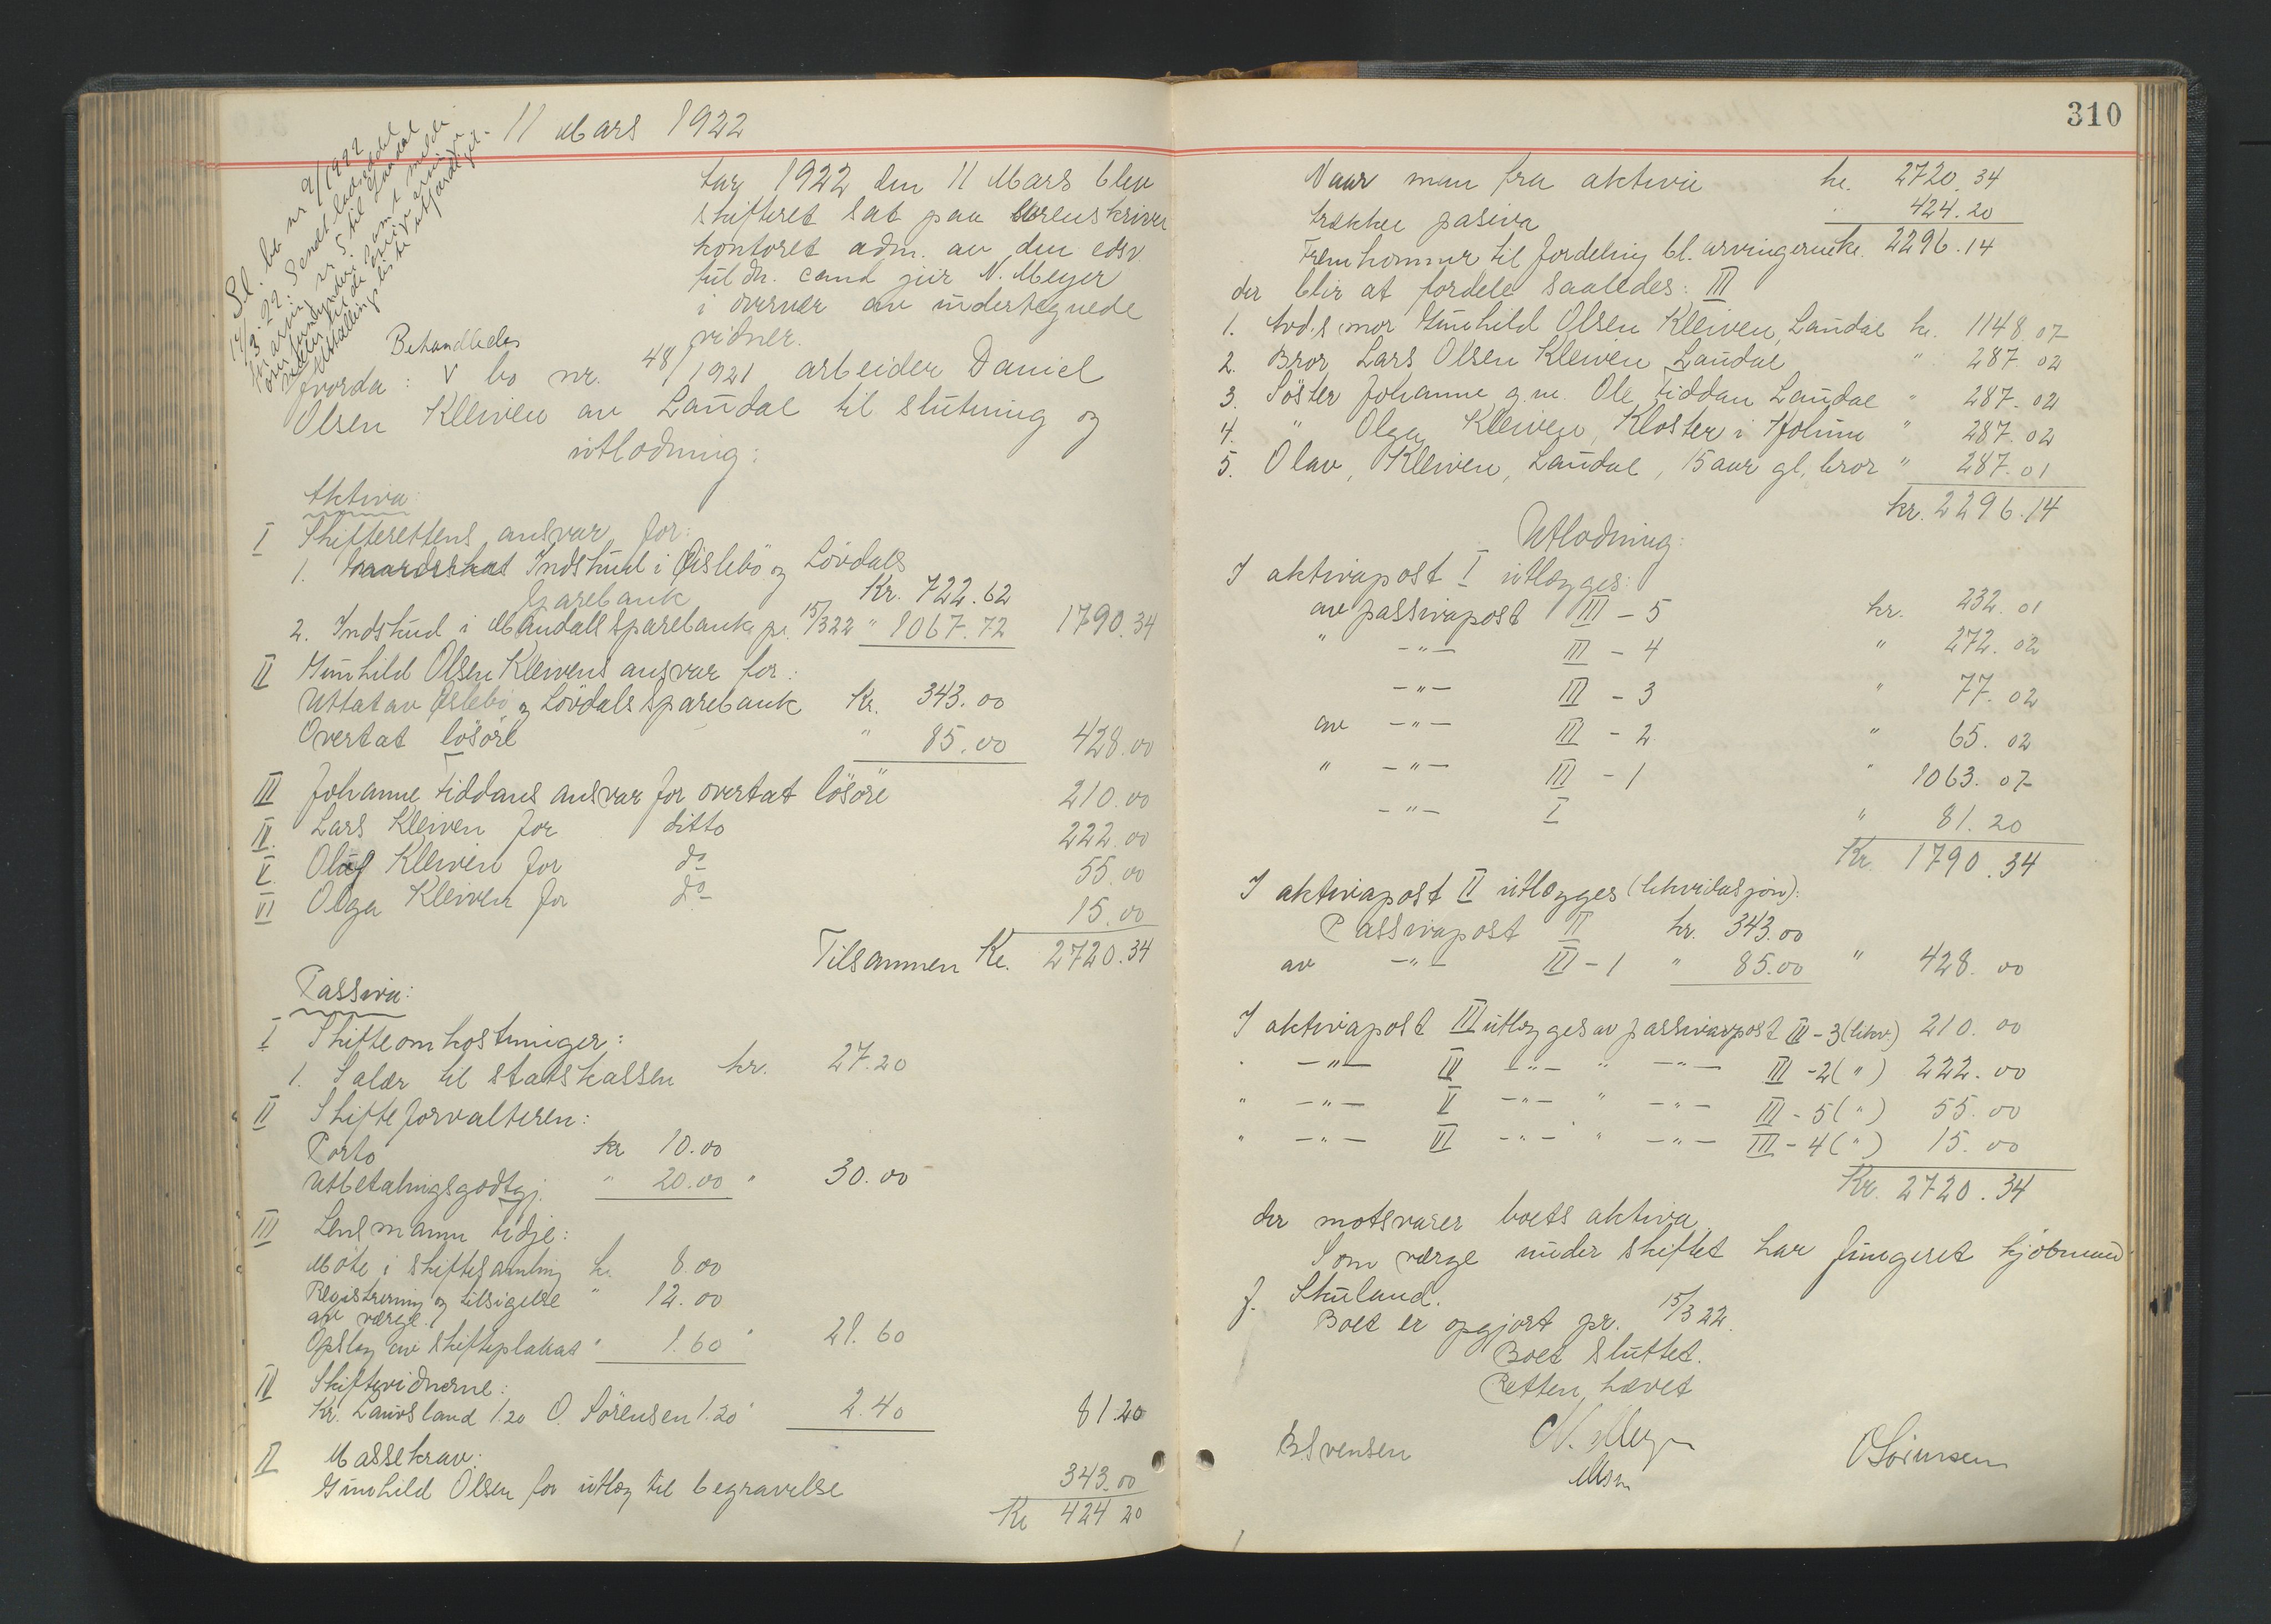 11 Mars 1922
Sl. bo nr 9/1922
Aar 1922 den 11 Mars blev
skifteret sat paa sorenskriver
kontoret adm. av den edsv.
fuldm. cand jur N. Meyer
i overvær av undertegnede
vidner.
Behandledes
hvorda: v bo nr. 48/1921 arbeider Daniel
Olsen Kleiven av Laudal til slutning og
utlodning:
Aktiva:
I Skifterettens ansvar for:
1. Indskud i Øislebø og Løvdals
Sparebank Kr. 722.62
2. Indskud i Mandals Sparebank pr. 15/3 22 " 1067.72 1790.34
II Gunhild Olsen Kleivens ansvar for:
Uttat av Øslebø og Løvdals Sparebank Kr. 343.00
Overtat løsøre " 85.00 428.00
III Johanne Fiddans ansvar for overtat løsøre 210.00
IV. Lars Kleiven for ditto 222.00
V. Olaf Kleiven for do 55.00
VI Olga Kleiven for do 15.00
Tilsammen Kr. 2720.34
Passiva:
I Skifteomkostninger:
1. Salær til statskassen kr. 27.20
II Skifteforvalteren:
Porto kr 10.00
Utbetalingsgodtgj. " 20.00 " 30.00
III Lensmann Tidje:
Møte i skiftesamling kr. 8.00
Registrering og tilsigelse " 12.00
av værge.
Opslag av skifteplakat " 1.60 " 21.60
IV Skiftevidnerne:
Kr. Lauvsland 1.20 O. Sørensen 1.20 " 2.40 81.20
II Massekrav:
Gunhild Olsen for utlæg til begravelse 343.00
Kr 424 20
310
Naar man fra aktiva kr. 2720.34
trækker pasiva 424.20
Fremkommer til fordeling bl. arvingerne kr. 2296.14
der blir at fordele saaledes: III
1. Avd.s mor Gunhild Olsen Kleiven, Laudal kr. 1148.07
2. Bror Lars Olsen Kleiven Laudal " 287.02
3. Søster Johanne g.m. Ole Fiddan Laudal " 287.02
4. " Olga Kleiven, Kloster i Holum " 287.02
5. Olav, Kleiven, Laudal, 15 aar gl. bror " 287.01
kr. 2296.14
Utlodning:
I aktivapost I utlægges:
av passivapost III - 5 kr. 232.01
" -"- III - 4 " 272.02
-"- III - 3 " 77.02
av -"- III - 2 " 65.02
" -"- III - 1 " 1063.07
-"- I " 81.20
Kr 1790.34
I aktivapost II utlægges (likvidasjon):
Passivapost II kr. 343.00
av -"- III - 1 " 85.00 " 428.00
I aktivapost III utlægges av passivapost III - 3 (likv.) 210.00
" -"- IV -"- " -"- III - 2 (") 222.00
" -"- V -"- " -"- III - 5 (") 55.00
" -"- VI -"- " -"- III - 4 (") 15.00
Kr. 2720.34
der motsvarer boets aktiva
Som værge under skiftet har fungeret kjøbmand
J. Skuland.
Boet er opgjort pr. 15/3 22.
Boet sluttet.
Retten hævet
B. Svensen N. Meyer O Sørensen